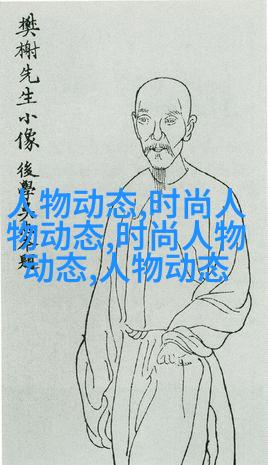 樊榭先生小像
後學
人物动态,时尚人
物动态,时尚人物
动态,人物动态